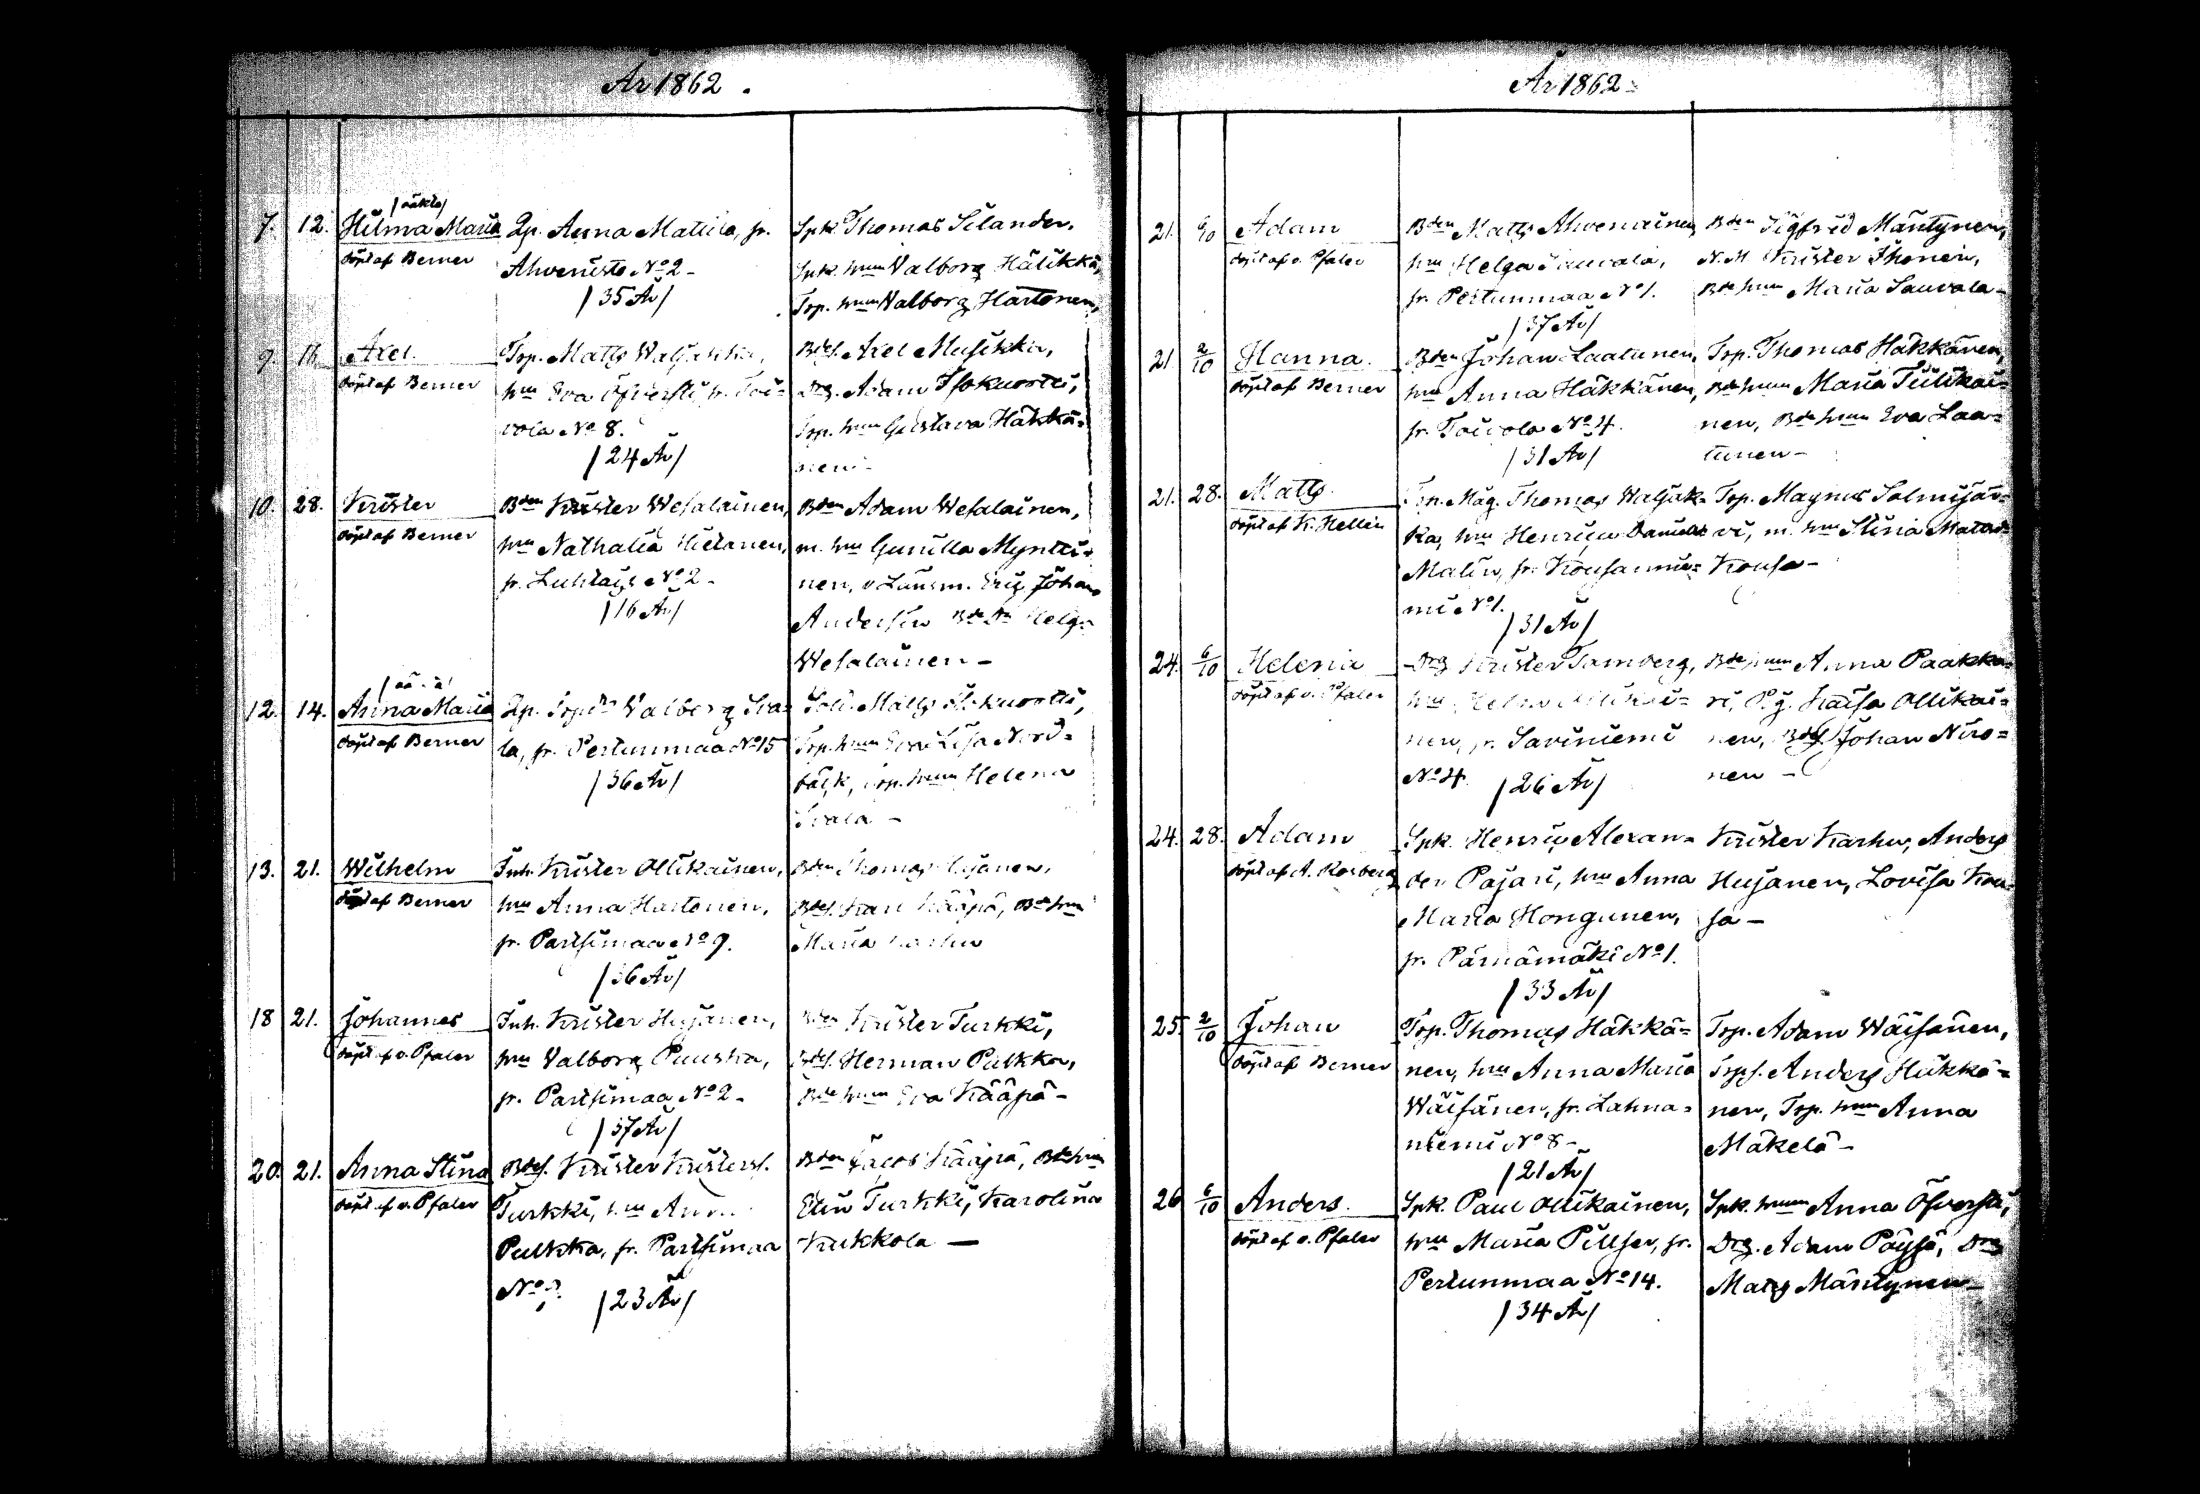 År 1862.
7. 12. Hilma Maria
döpt af Berner
Qp. Anna Matilda, fr.
Ahveniste No 2-
/35 År/
Spk. Thomas Silander,
Spk. hum Valborg Hälikkä,
Trp. hum Valborg Hartonen,
9. 16. Axel.
döpt af Berner
Trp. Matts Waljakka,
hu Eva Öfversti, fr. Toi-
vola No 8.
/24 År/
Bdes. Axel Musikka,
Drg. Adam Isokuortti,
Trp. hum Gustava Häkkä-
nen-
10. 28. Krister
döpt af Berner
Bden Krister Wesalainen,
hu Nathalia Hietanen,
fr. Luhtais No 2-
/16 År/
Bden Adam Wesalainen,
m. hu Gunilla Myntti-
nen, v. Länsm. Eriç Johan
Andersin Helga
Wesalainen-
12. 14. Anna Maria
döpt af Berner
Qp. Valborg Sva-
la, fr. Pertunmaa No 15
/36 År/
Sold. Matts Isokuortti,
Trp. hum Eva Lisa Nord-
bäck, Trp. hum Helena
Svala-
13. 21. Wilhelm
döpt af Berner
Inh. Krister Ollikainen,
hu Anna Hartonen,
fr. Partsimaa No 9.
/36 År/
Bden Thomas Hujanen,
Bdes. Karl Kääpä, Bde hu
Maria Karhu
18 21. Johannes
döpt af v. Pfaler
Inh. Krister Hujanen,
hu Valborg Puuska,
fr. Partsimaa No 2-
/37 År/
Bden Krister Turkki,
Bdes. Herman Pulkka,
Bde hum Eva Kääpä-
20. 21. Anna Stina
döpt af v. Pfaler
Bdes. Krister Kristers.
Turkki, hu Anna
Pulkka, fr. Partsimaa
No
/23 År/
Bden Jacob Kääpä, Bde hu
Elin Turkki, Karolina
Kukkola-
År 1862-
21. 6/10 Adam
döpt af v. Pfaler
Bden Matts Ahvenainen
hu Helga Sauvala,
fr. Pertunmaa No 1.
/37 År/
Bden Sigfrid Mäntynen,
N.M. Krister Ihonen,
Bde hum Maria Sauvala-
21 2/10 Hanna.
döpt af Berner
Bden Johan Laatunen,
hu Anna Häkkänen,
fr. Toivola No 4.
/31 År/
Trp. Thomas Häkkänen,
Bde hum Maria Tiilikai-
nen, Bde hum Eva Laa-
tunen-
21. 28. Matts.
döpt af K. Hellén
Mag. Thomas Waljak-
ka, hu Henrica Danielst
Malin, fr. Kousannie-
mi No 1.
/31 År/
Trp. Magnus Salmijär-
vi, m. hu Stina Matsd
Kousa-
24. 6/10 Helena
döpt af v. Pfaler
Drg Krister Tamberg,
hu Helena Ollikai-
nen, fr. Saviniemi
No 4. /26 År/
Bde hum Anna Paakka-
ri, P.g. Kaisa Ollikai-
nen, Bdes. Johan Niro-
nen-
24. 28. Adam
döpt af A. Rosberg
Spk. Henriç Alexan-
der Pajari, hu Anna
Maria Hongunen,
fr. Pärnämäki No 1.
/33 År/
Krister Karhu, Anders
Hujanen, Lovisa Kou-
sa-
25. 2/10 Johan
döpt af Berner
Trp. Thomas Häkkä-
nen, hu Anna Maria
Wäisänen, fr. Lahna-
niemi No 8-
/21 År/
Trp. Adam Wäisänen,
Trps. Anders Häkkä-
nen, Trp. hum Anna
Mäkelä-
26 6/10 Anders.
döpt af v. Pfaler
Spk. Paul Ollikainen,
hu Maria Pillser, fr.
Pertunmaa No 14.
/34 År/
Spk. hum Anna Öfversti,
Drg. Adam Pöysä, Drg
Matts Mäntynen-